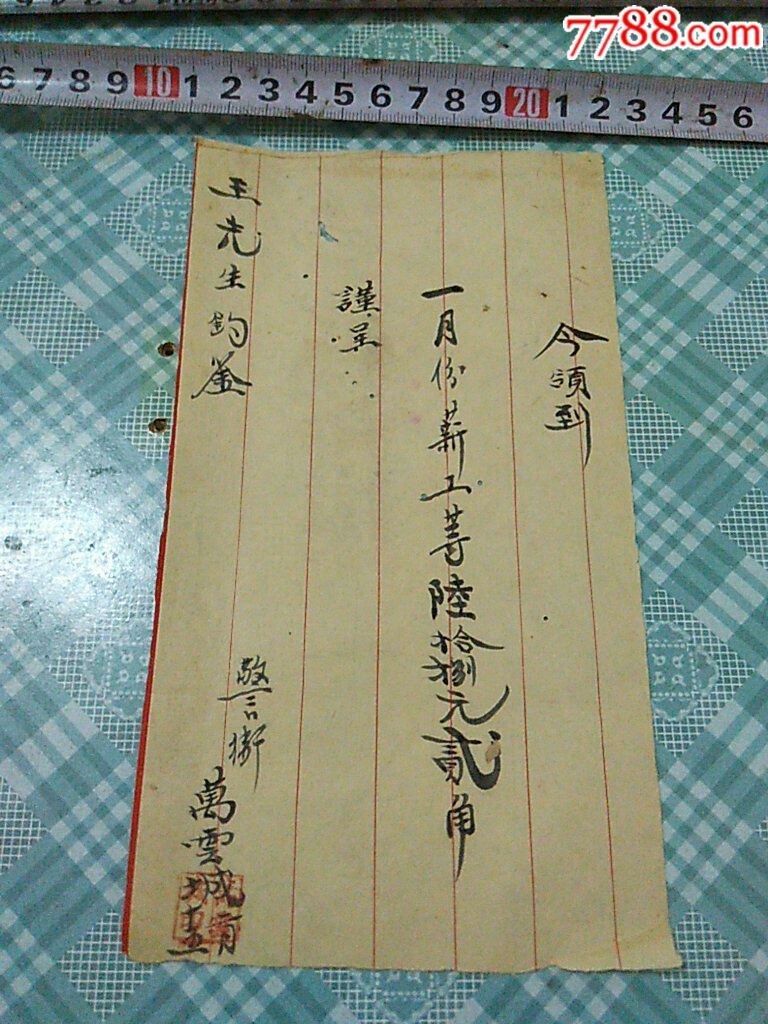 7788.com
6 7 8 9 10 1 2 3 4 5 6 7 8 9 20 1 2 3 4 5 6
今領到
一月份薪工等陸拾捌元貳角
謹呈
王先生鈞鉴
警衛
萬雲城